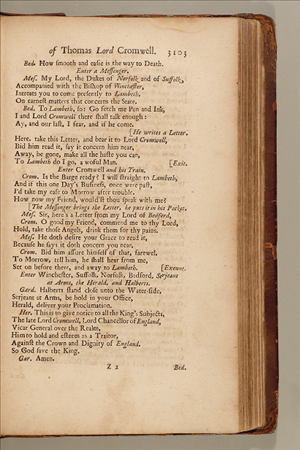 of Thomas Lord Cromwell. 3103
Bed. How smooth and easie is the way to Death.
Enter a Messenger.
Mes. My Lord, the Dukes of Norfolk and of Suffolk,
Accompanied with the Bishop of Winchester,
Intreats you to come presently to Lambeth,
On earnest matters that concerns the State.
Bed. To Lambeth, so: Go fetch me Pen and Ink,
I and Lord Cromwell there shall talk enough:
Ay, and our last, I fear, and if he come.
[He writes a Letter.
Here, take this Letter, and bear it to Lord Cromwell,
Bid him read it, say it concern him near,
Away, be gone, make all the haste you can,
To Lambeth do I go, a woful Man. [Exit.
Enter Cromwell and his Train.
Crom. Is the Barge ready? I will straight to Lambeth,
And if this one day's Business, once were past,
I'd take my ease to Morrow after trouble.
How now my Friend, wouldst thou speak with me?
[The Messenger brings the Letter, he puts it in his Pocket.
Mes. Sir, here's a Letter from my Lord of Bedford,
Crom. O good my Friend, commend me to thy Lord,
Hold, take those Angels, drink them for thy pains.
Mes. He doth desire your Grace to read it,
Because he says it doth concern you near.
Crom. Bid him assure himself of that, farewel,
To Morrow, tell him, he shall hear from me,
Set on before there, and away to Lambeth. [Exeunt.
Enter Winchester, Suffolk, Norfolk, Bedford, Serjeant
at Arms, the Herald, and Halberts.
Gard. Halberts stand close unto the Water-side,
Serjeant at Arms, be bold in your Office,
Herald, deliver your Proclamation.
Her. This is to give notice to all the King's Subjects,
The late Lord Cromwell, Lord Chancellor of England,
Vicar General over the Realm,
Him to hold and esteem as a Traitor,
Against the Crown and Dignity of England.
So God save the King.
Gar. Amen.
Z 2 Bed.